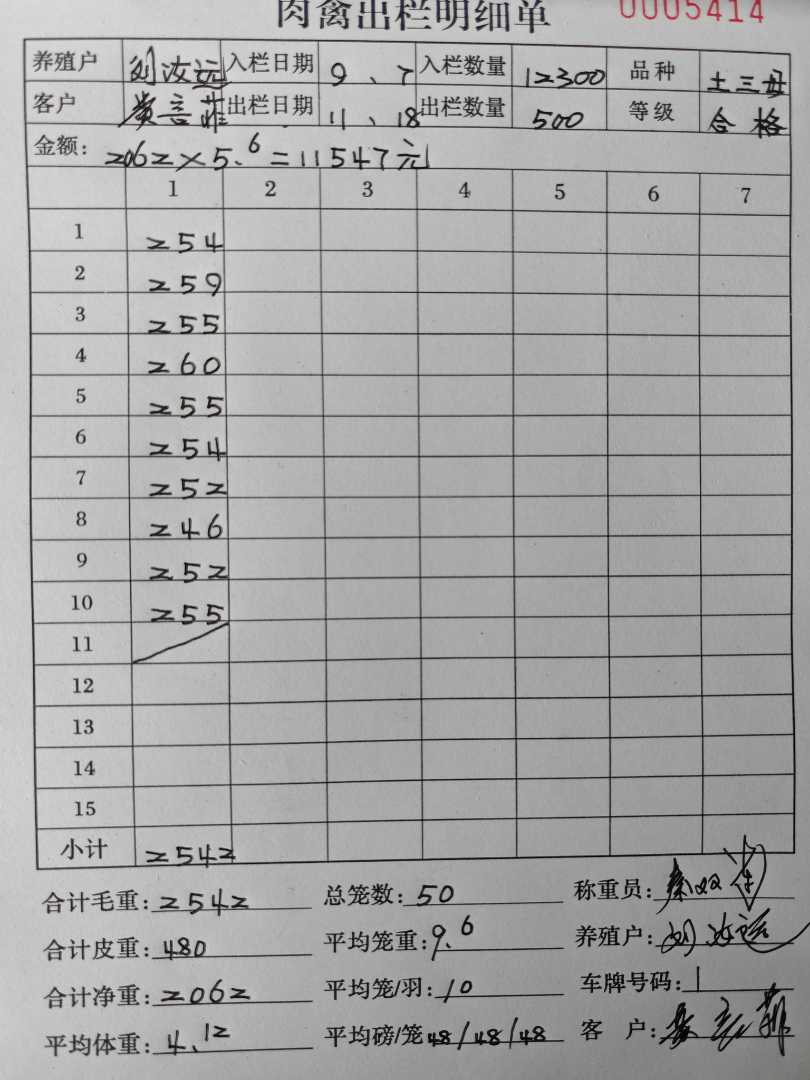 肉禽出栏明细单 0005414
养殖户 刘汝远 入栏日期 9、7 入栏数量 12300 品种 土三母
客户 黄言菲 出栏日期 11、18 出栏数量 500 等级 合格
金额: 2062×5.6=11547元
1 2 3 4 5 6 7
1 254
2 259
3 255
4 260
5 255
6 254
7 252
8 246
9 252
10 255
11
12
13
14
15
小计 2542
合计毛重: 2542 总笼数: 50 称重员:
合计皮重: 480 平均笼重: 9.6 养殖户: 刘汝远
合计净重: 2062 平均笼/羽: 10 车牌号码: 1
平均体重: 4.12 平均磅/笼 48/48/48 客 户: